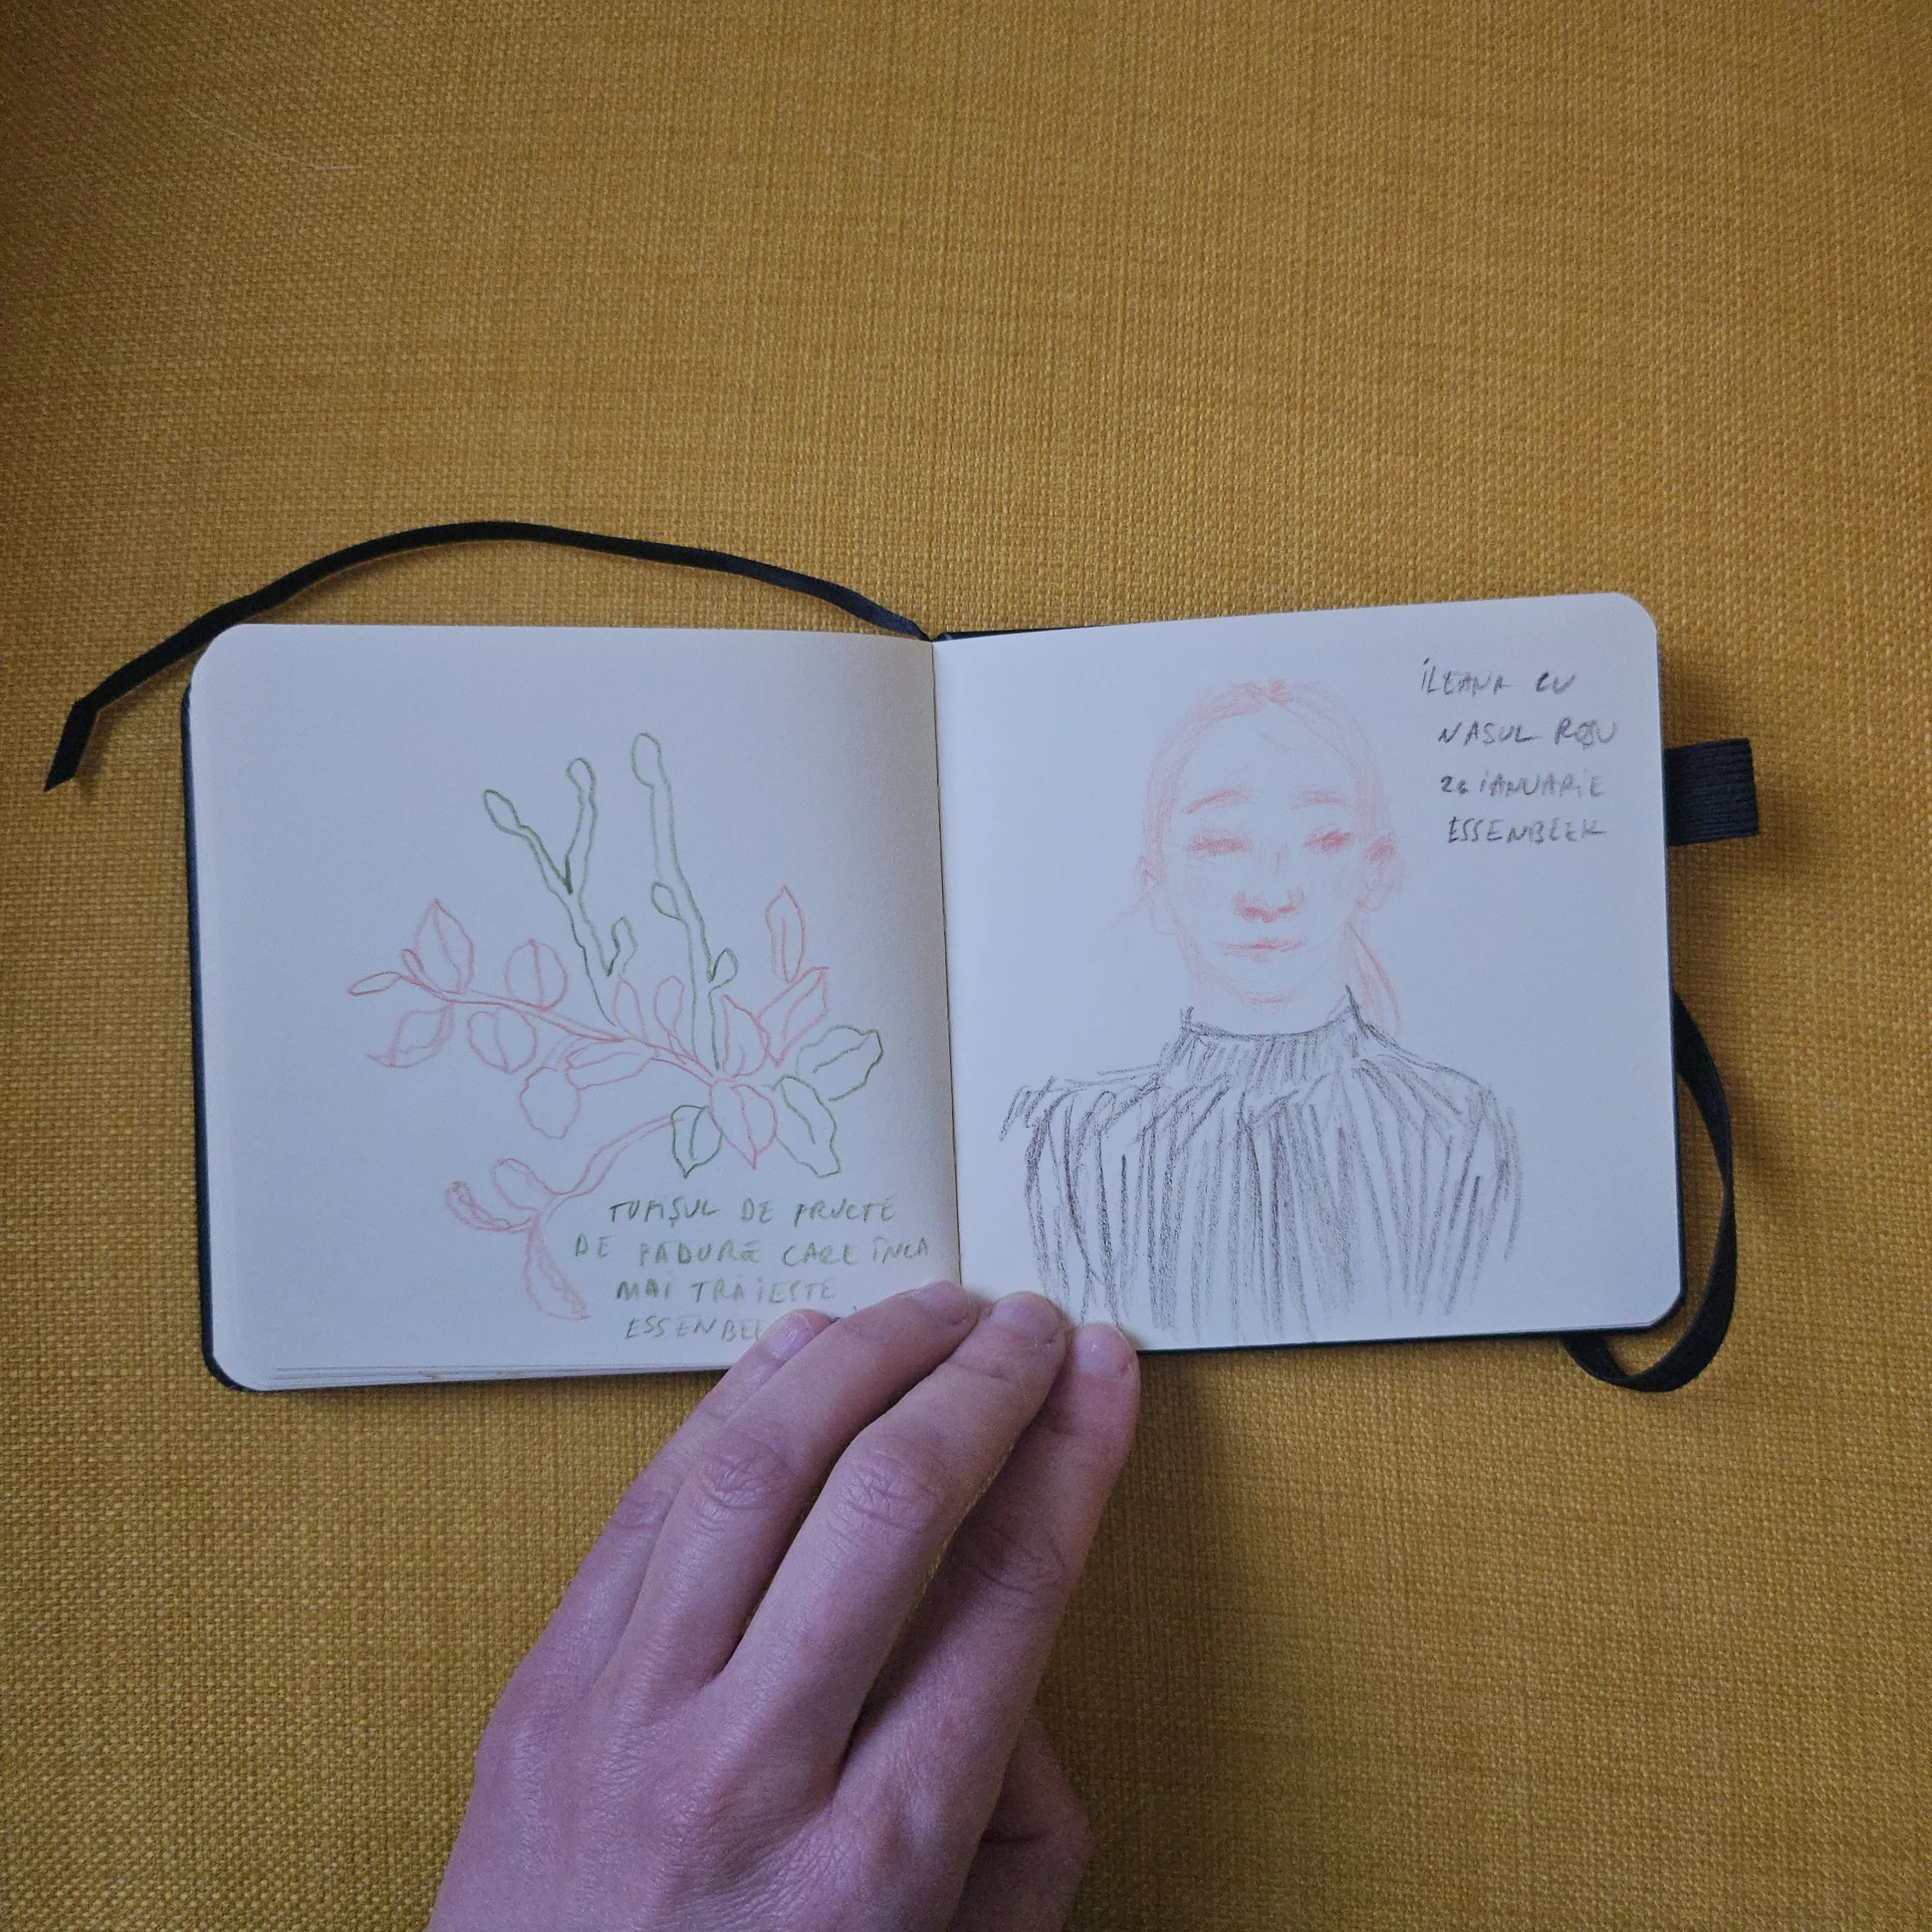 TUFIȘUL DE FRUCTE
DE PĂDURE CARE ÎNCĂ
MAI TRĂIEȘTE
ESSENBEE
ILEANA CU
NASUL ROȘU
26 IANUARIE
ESSENBEEK